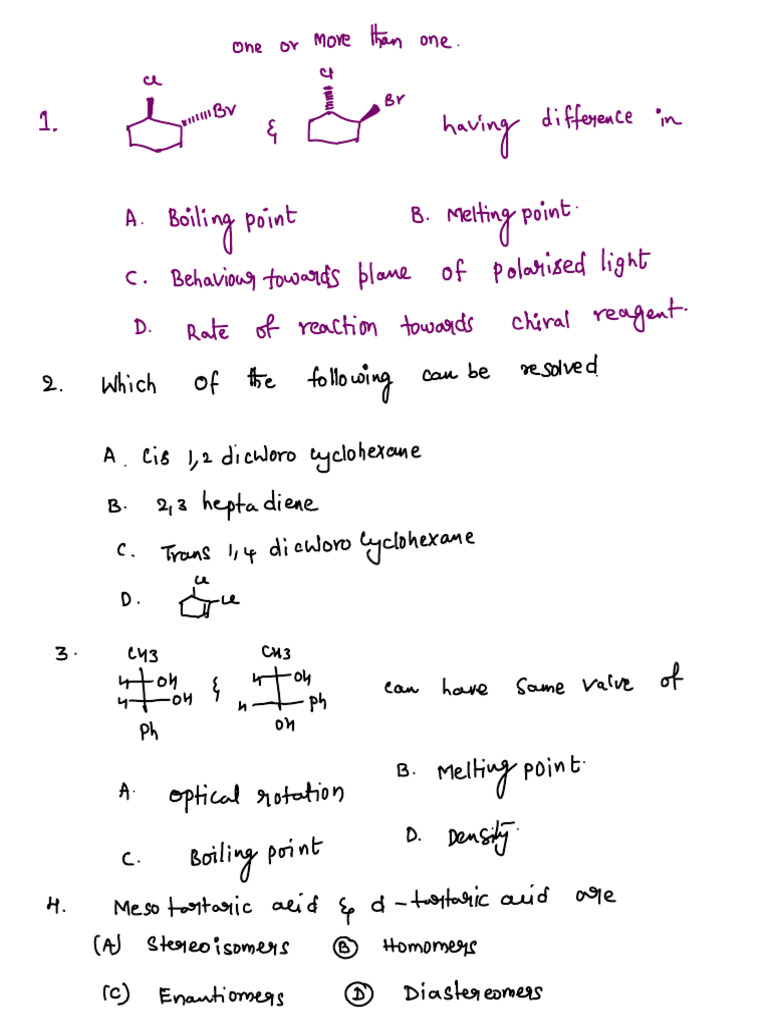 One or More than one.
Cl
Cl
1. Br & Br having difference in
A. Boiling point B. Melting point.
C. Behaviour towards plane of polarised light
D. Rate of reaction towards chiral reagent.
2. Which of the following can be resolved
A. Cis 1,2 dichloro cyclohexane
B. 2,3 heptadiene
C. Trans 1,4 dichloro cyclohexane
Cl
D. Cl
3. CH3 CH3
H OH & H OH can have same value of
H OH H Ph
Ph OH
A. optical rotation B. Melting point.
C. Boiling point D. Density.
4. Meso tartaric acid & d-tartaric acid are
(A) Stereoisomers (B) Homomers
(C) Enantiomers (D) Diastereomers